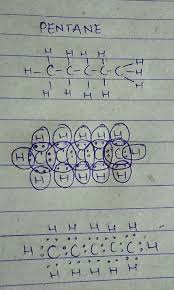 PENTANE
H H H H
H-C-C-C-C-C-H
H H H H H
H H H H H
H C C C C C H
H H H H H
H H H H H
H:C:C:C:C:C:H
H H H H H